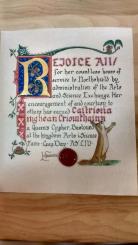 REJOICE All!
for her countless hours of
service to Northshield by
administration of the Arts
and Science Exchange. Her
encouragement of and courtesy to
others has earned Caitriona
inghean Criomhthainn
a Queen's Cypher. Bestowed
at the Kingdom Arts & Science
Faire